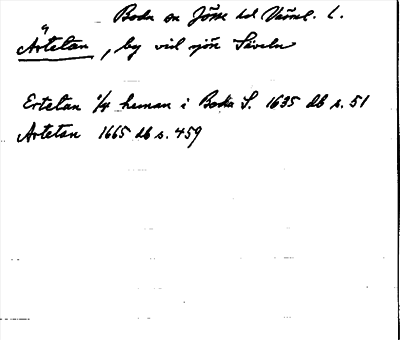 Boda sn Jösse hd Värml. l.
Ärtetan, by vid sjön
Ertetan 1/4 heman i Boda S. 1635 db s. 51
Artetan 1665 db s. 459